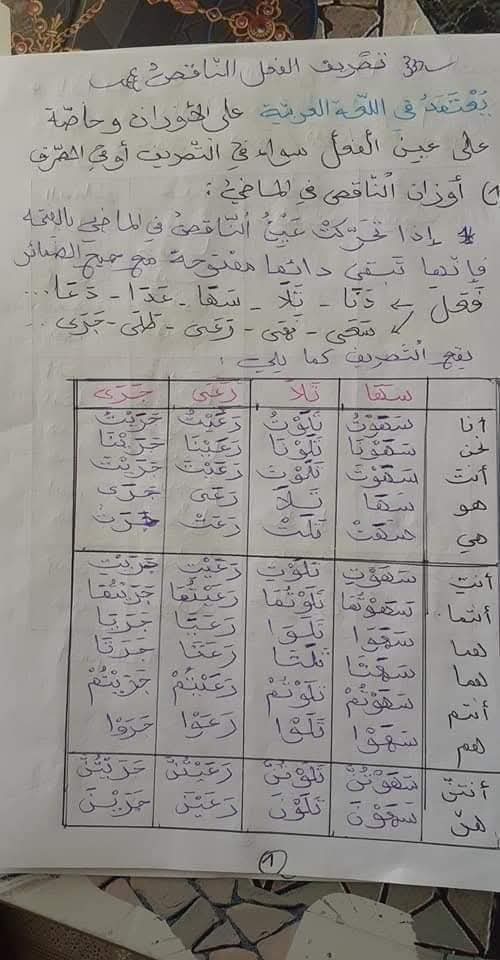 تصريف الفعل الناقص
يَعْتَمَدُ في اللغة العربية على الأوزان وخاصة
على عين الفعل سواء في التصريف أو في الصرف
1) أوزان الناقص في الماضي:
* إذا تحركت عين الناقص في الماضي بالفتحة
فإنها تبقى دائما مفتوحة مع جميع الضمائر
فَعَلَ ← دَنَا - تَلَا - سَهَا - عَدَا - دَعَا...
← سَعَى - نَهَى - رَعَى - طَلَى - جَرَى...
يقع التصريف كما يلي:
سَهَا تَلَا رَعَى جَرَى
أنا سَهَوْتُ تَلَوْتُ رَعَيْتُ جَرَيْتُ
نحن سَهَوْنَا تَلَوْنَا رَعَيْنَا جَرَيْنَا
أنتَ سَهَوْتَ تَلَوْتَ رَعَيْتَ جَرَيْتَ
هو سَهَا تَلَا رَعَى جَرَى
هي سَهَتْ تَلَتْ رَعَتْ جَرَتْ
أنتِ سَهَوْتِ تَلَوْتِ رَعَيْتِ جَرَيْتِ
أنتما سَهَوْتُمَا تَلَوْتُمَا رَعَيْتُمَا جَرَيْتُمَا
هما سَهَوَا تَلَوَا رَعَيَا جَرَيَا
هما سَهَتَا تَلَتَا رَعَتَا جَرَتَا
أنتم سَهَوْتُمْ تَلَوْتُمْ رَعَيْتُمْ جَرَيْتُمْ
هم سَهَوْا تَلَوْا رَعَوْا جَرَوْا
أنتنّ سَهَوْتُنَّ تَلَوْتُنَّ رَعَيْتُنَّ جَرَيْتُنَّ
هنّ سَهَوْنَ تَلَوْنَ رَعَيْنَ جَرَيْنَ
1